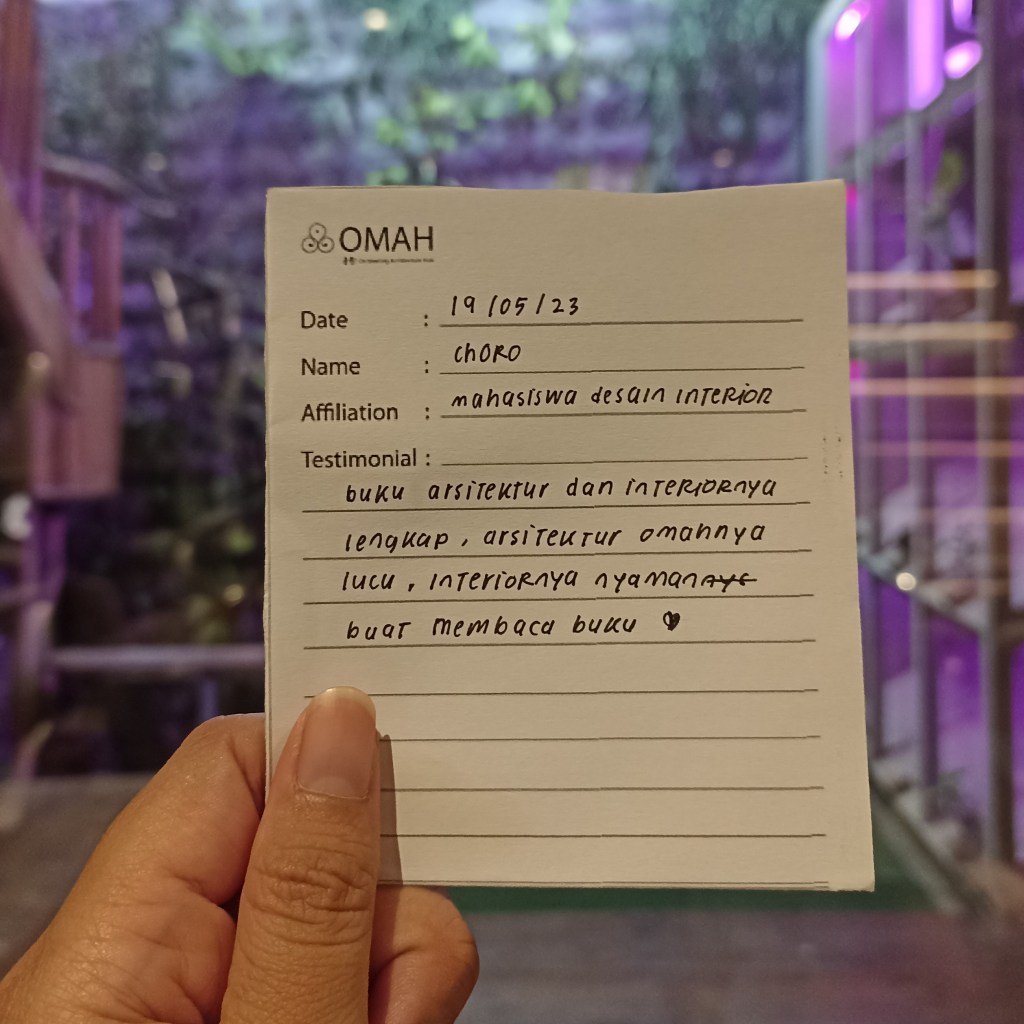 OMAH
Date : 19/05/23
Name : chORO
Affiliation : mahasiswa desain interior
Testimonial :
buku arsitektur dan interiornya
lengkap, arsitektur omahnya
lucu, interiornya nyaman
buat membaca buku ♥